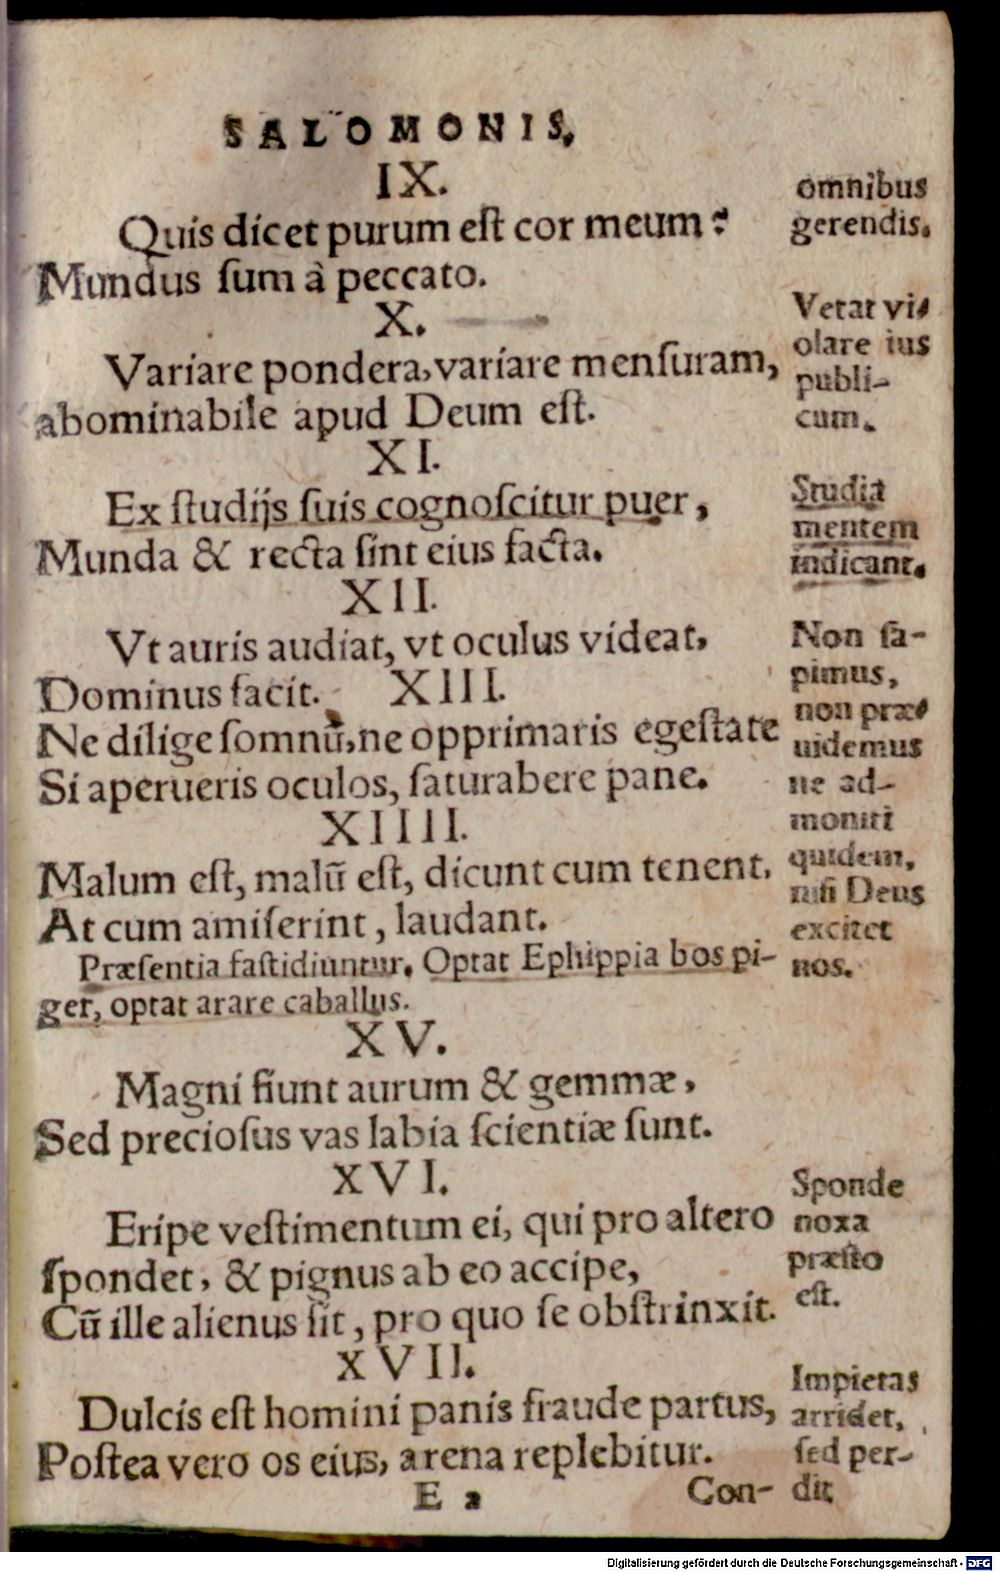 SALOMONIS.
IX.
Quis dicet purum eſt cor meum?
Mundus ſum à peccato.
X.
Variare pondera, variare menſuram,
abominabile apud Deum eſt.
XI.
Ex ſtudijs ſuis cognoſcitur puer,
Munda & recta ſint eius facta.
XII.
Vt auris audiat, vt oculus videat,
Dominus facit. XIII.
Ne dilige ſomnũ, ne opprimaris egeſtate
Si aperueris oculos, ſaturabere pane.
XIIII.
Malum eſt, malũ eſt, dicunt cum tenent.
At cum amiſerint, laudant.
Præſentia faſtidiuntur. Optat Ephippia bos pi-
ger, optat arare caballus.
XV.
Magni fiunt aurum & gemmæ,
Sed precioſus vas labia ſcientiæ ſunt.
XVI.
Eripe veſtimentum ei, qui pro altero
ſpondet, & pignus ab eo accipe,
Cũ ille alienus ſit, pro quo ſe obſtrinxit.
XVII.
Dulcis eſt homini panis fraude partus,
Poſtea vero os eius, arena replebitur.
E 2 Con-
omnibus
gerendis.
Vetat vi-
olare ius
publi-
cum.
Studia
mentem
indicant.
Non ſa-
pimus,
non præ-
uidemus
ne ad-
moniti
quidem,
niſi Deus
excitet
nos.
Sponde
noxa
præſto
eſt.
Impietas
arridet,
ſed per-
dit
Digitalisierung gefördert durch die Deutsche Forschungsgemeinschaft - DFG